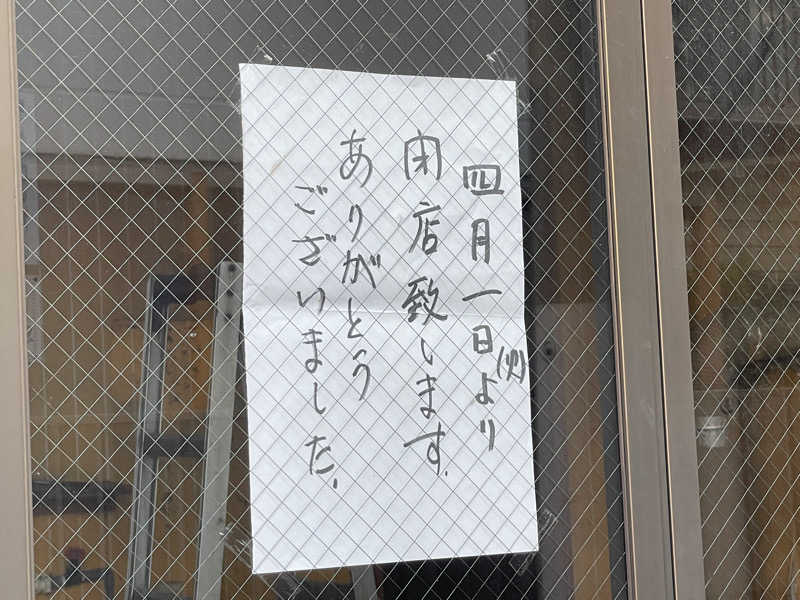 四月一日(火)より
閉店致します.
ありがとう
ございました.